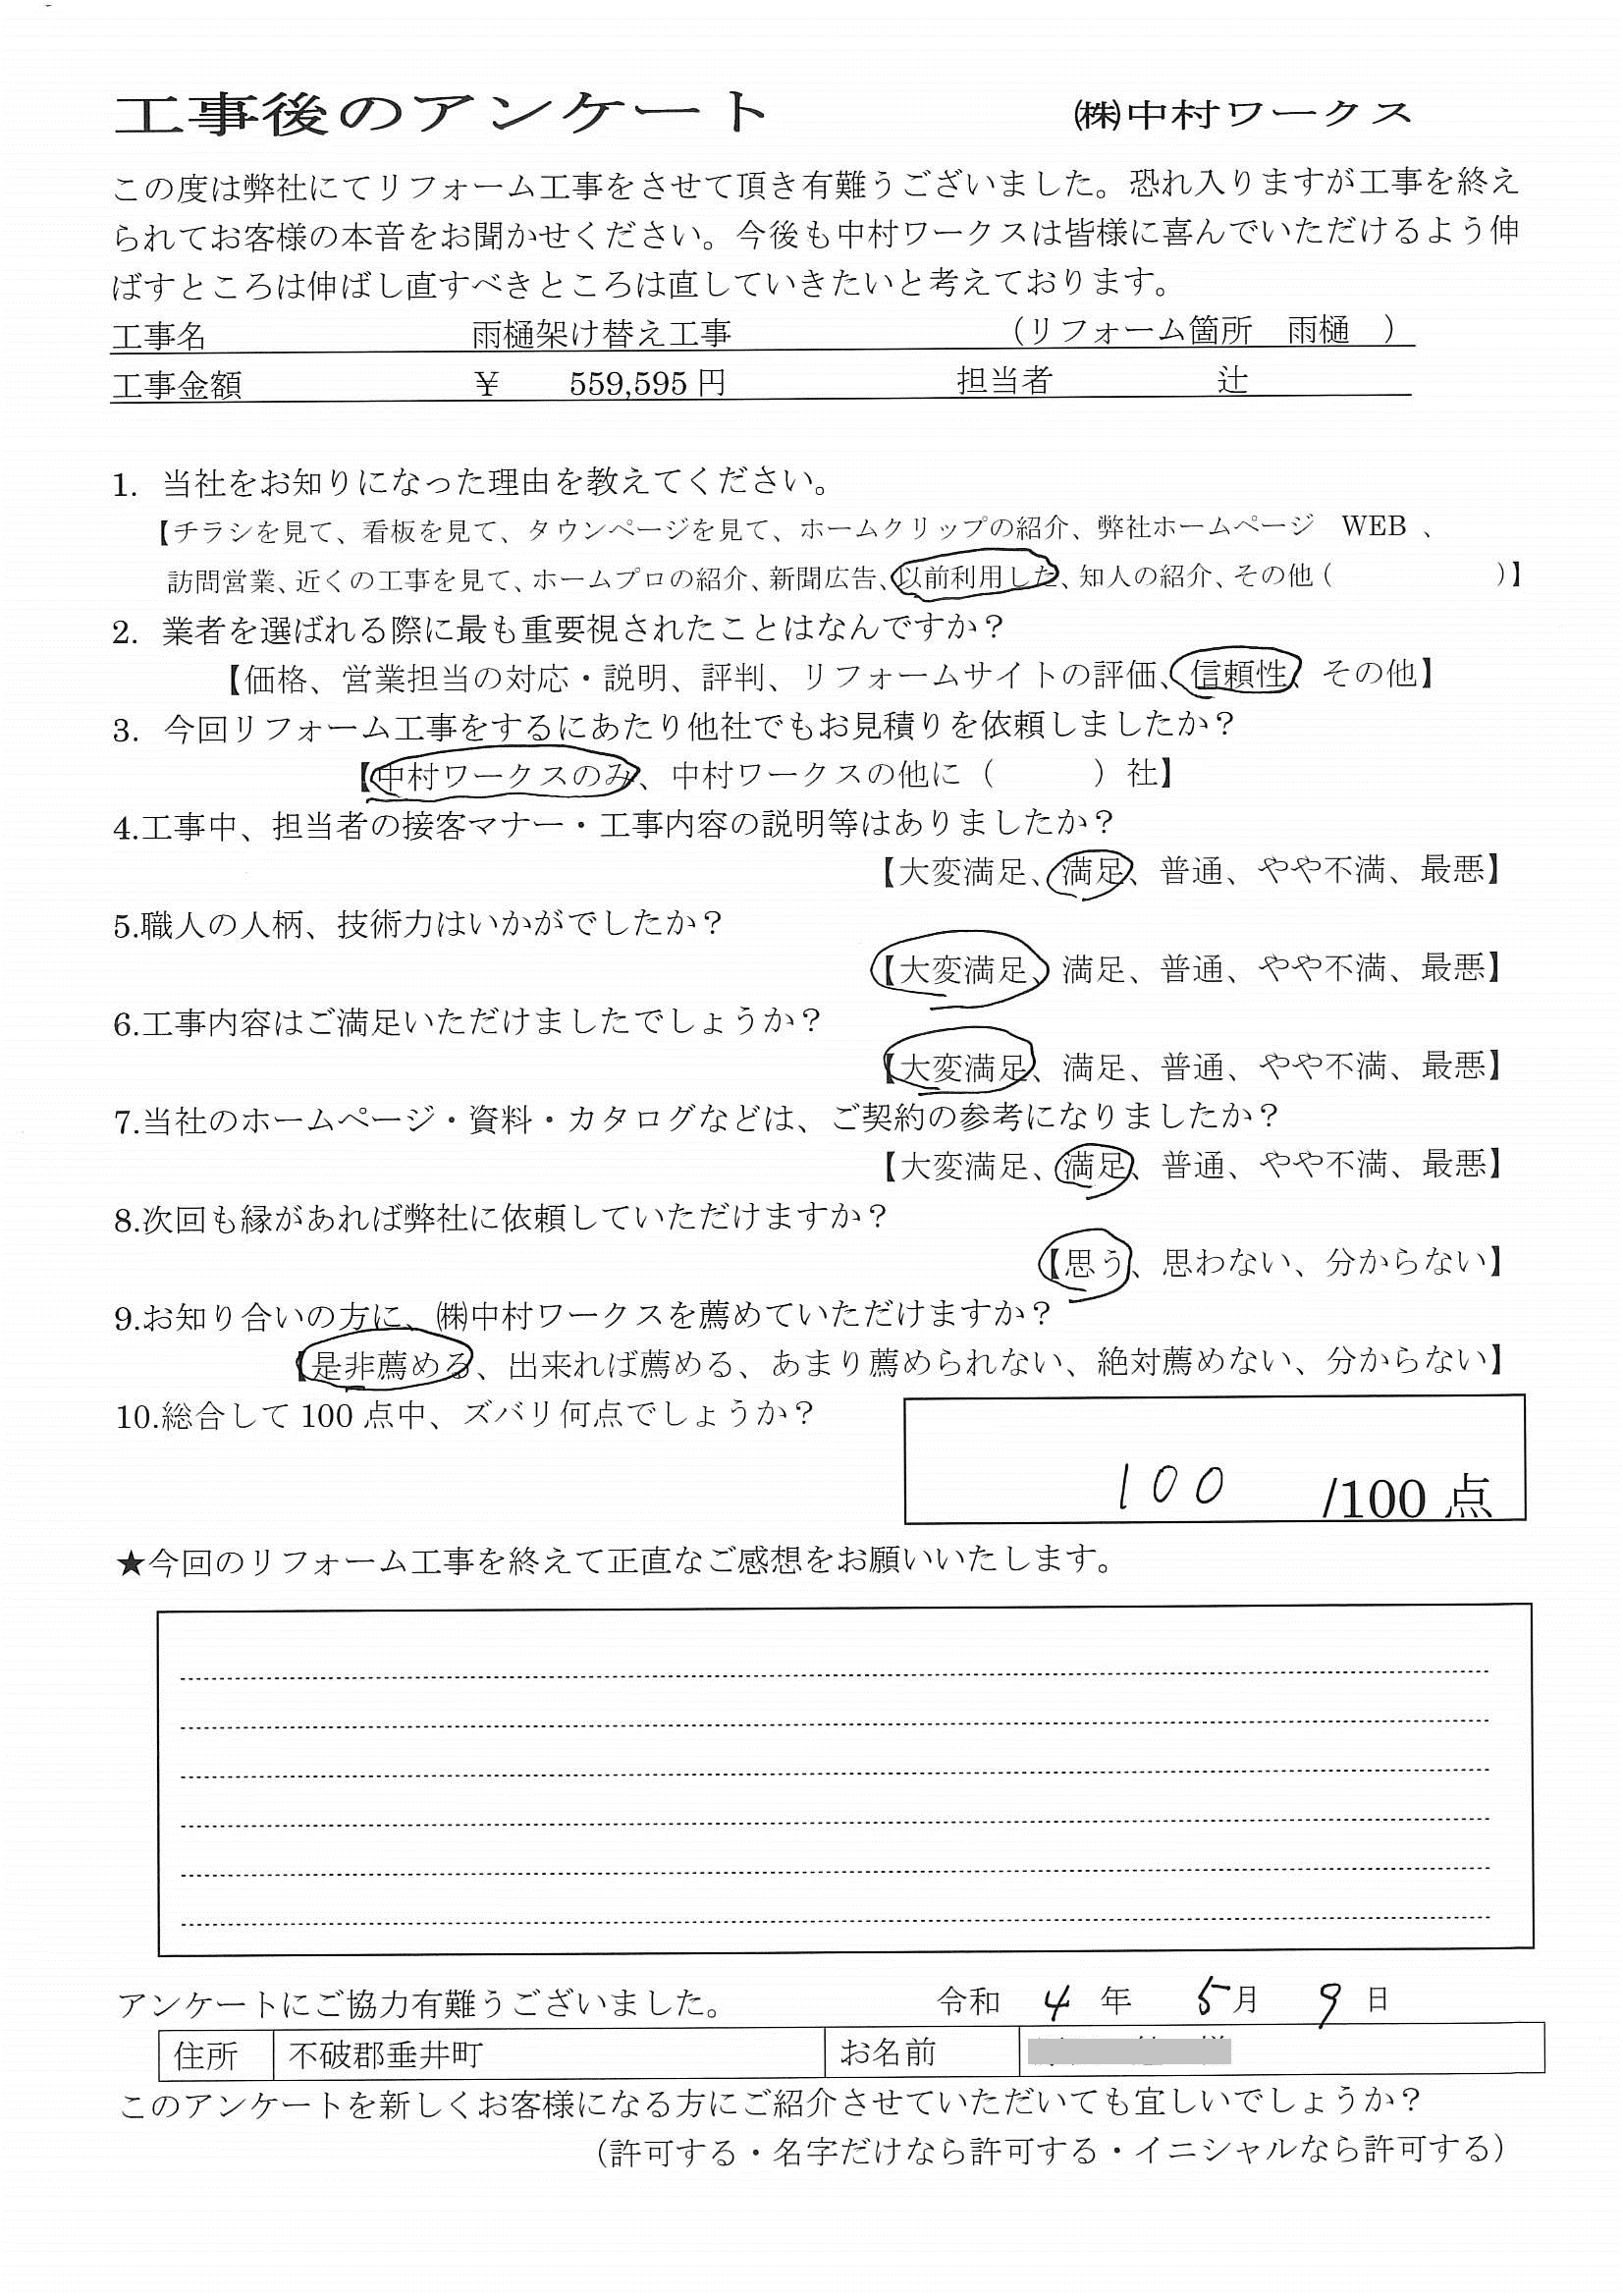 工事後のアンケート ㈱中村ワークス
この度は弊社にてリフォーム工事をさせて頂き有難うございました。恐れ入りますが工事を終え
られてお客様の本音をお聞かせください。今後も中村ワークスは皆様に喜んでいただけるよう伸
ばすところは伸ばし直すべきところは直していきたいと考えております。
工事名 雨樋架け替え工事 （リフォーム箇所 雨樋 ）
工事金額 ￥ 559,595円 担当者 辻
1. 当社をお知りになった理由を教えてください。
【チラシを見て、看板を見て、タウンページを見て、ホームクリップの紹介、弊社ホームページ WEB 、
訪問営業、近くの工事を見て、ホームプロの紹介、新聞広告、以前利用した、知人の紹介、その他（ ）】
2. 業者を選ばれる際に最も重要視されたことはなんですか？
【価格、営業担当の対応・説明、評判、リフォームサイトの評価、信頼性、その他】
3. 今回リフォーム工事をするにあたり他社でもお見積りを依頼しましたか？
【中村ワークスのみ、中村ワークスの他に（ ）社】
4.工事中、担当者の接客マナー・工事内容の説明等はありましたか？
【大変満足、満足、普通、やや不満、最悪】
5.職人の人柄、技術力はいかがでしたか？
【大変満足、満足、普通、やや不満、最悪】
6.工事内容はご満足いただけましたでしょうか？
【大変満足、満足、普通、やや不満、最悪】
7.当社のホームページ・資料・カタログなどは、ご契約の参考になりましたか？
【大変満足、満足、普通、やや不満、最悪】
8.次回も縁があれば弊社に依頼していただけますか？
【思う、思わない、分からない】
9.お知り合いの方に、㈱中村ワークスを薦めていただけますか？
【是非薦める、出来れば薦める、あまり薦められない、絶対薦めない、分からない】
10.総合して100点中、ズバリ何点でしょうか？
100 /100点
★今回のリフォーム工事を終えて正直なご感想をお願いいたします。
アンケートにご協力有難うございました。 令和 4 年 5月 9 日
住所 不破郡垂井町 お名前
このアンケートを新しくお客様になる方にご紹介させていただいても宜しいでしょうか？
（許可する・名字だけなら許可する・イニシャルなら許可する）